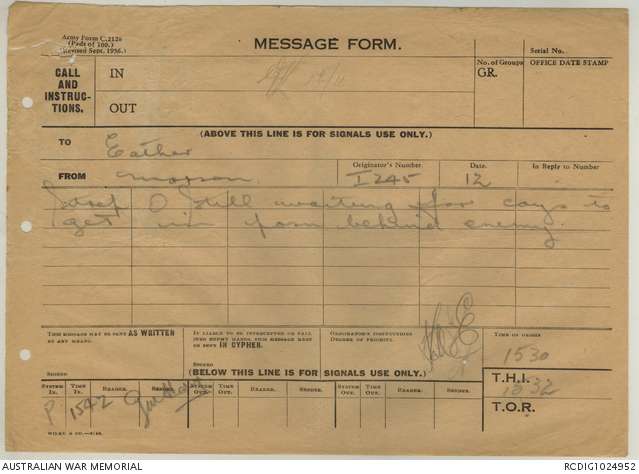 Army Form C.2126
(Pads of 100.)
(Revised Sept. 1936.)
MESSAGE FORM.
Serial No.
CALL
AND
INSTRUC-
TIONS.
IN
OUT
No. of Groups
GR.
OFFICE DATE STAMP
(ABOVE THIS LINE IS FOR SIGNALS USE ONLY.)
TO Eather
FROM
Originator's Number
I 245
Date.
12
In Reply to Number
still waiting for coys to
get in posn behind enemy.
THIS MESSAGE MAY BE SENT AS WRITTEN
BY ANY MEANS.
SIGNED
IF LIABLE TO BE INTERCEPTED OR FALL
INTO ENEMY HANDS, THIS MESSAGE MUST
BE SENT IN CIPHER.
SIGNED
ORIGINATOR'S INSTRUCTIONS
DEGREE OF PRIORITY.
TIME OF ORIGIN
1530
(BELOW THIS LINE IS FOR SIGNALS USE ONLY.)
T.H.I.
1532
T.O.R.
SYSTEM IN. TIME IN. READER. SENDER. SYSTEM OUT. TIME OUT. READER. SENDER. SYSTEM OUT. TIME OUT. READER. SENDER.
P 1542
AUSTRALIAN WAR MEMORIAL
RCDIG1024952